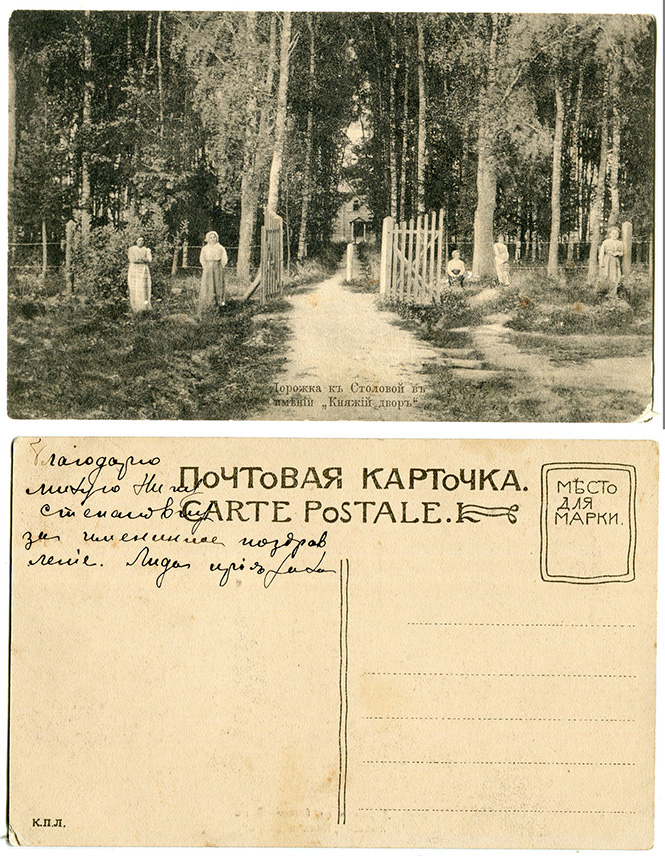 Дорожка къ Столовой въ
имѣніи „Княжій дворъ“
Благодарю
милую Нину
степановну
за именинное поздрав
леніе. Лида
ПОЧТОВАЯ КАРТОЧКА.
CARTE POSTALE.
МѢСТО
ДЛЯ
МАРКИ.
К.П.Л.